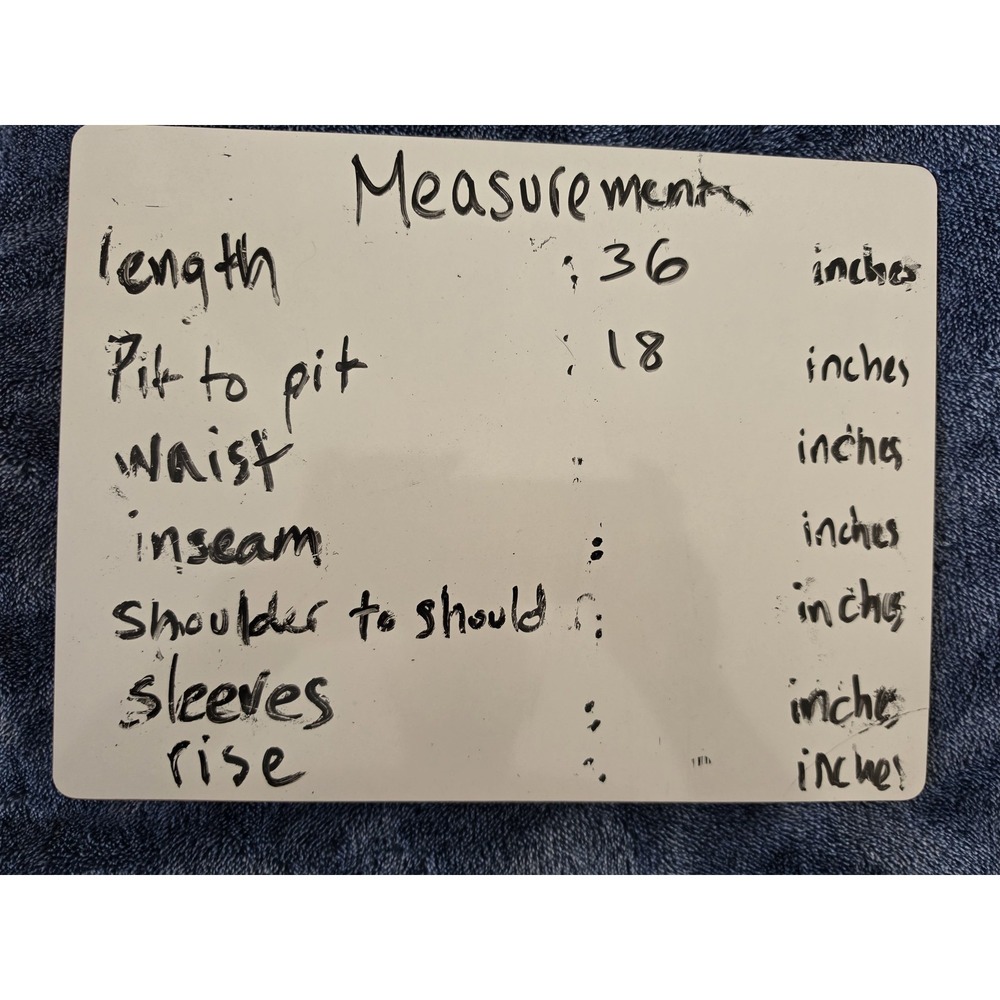 Measurement
length : 36 inches
Pit to pit : 18 inches
waist : inches
inseam : inches
shoulder to should : inches
sleeves : inches
rise : inches